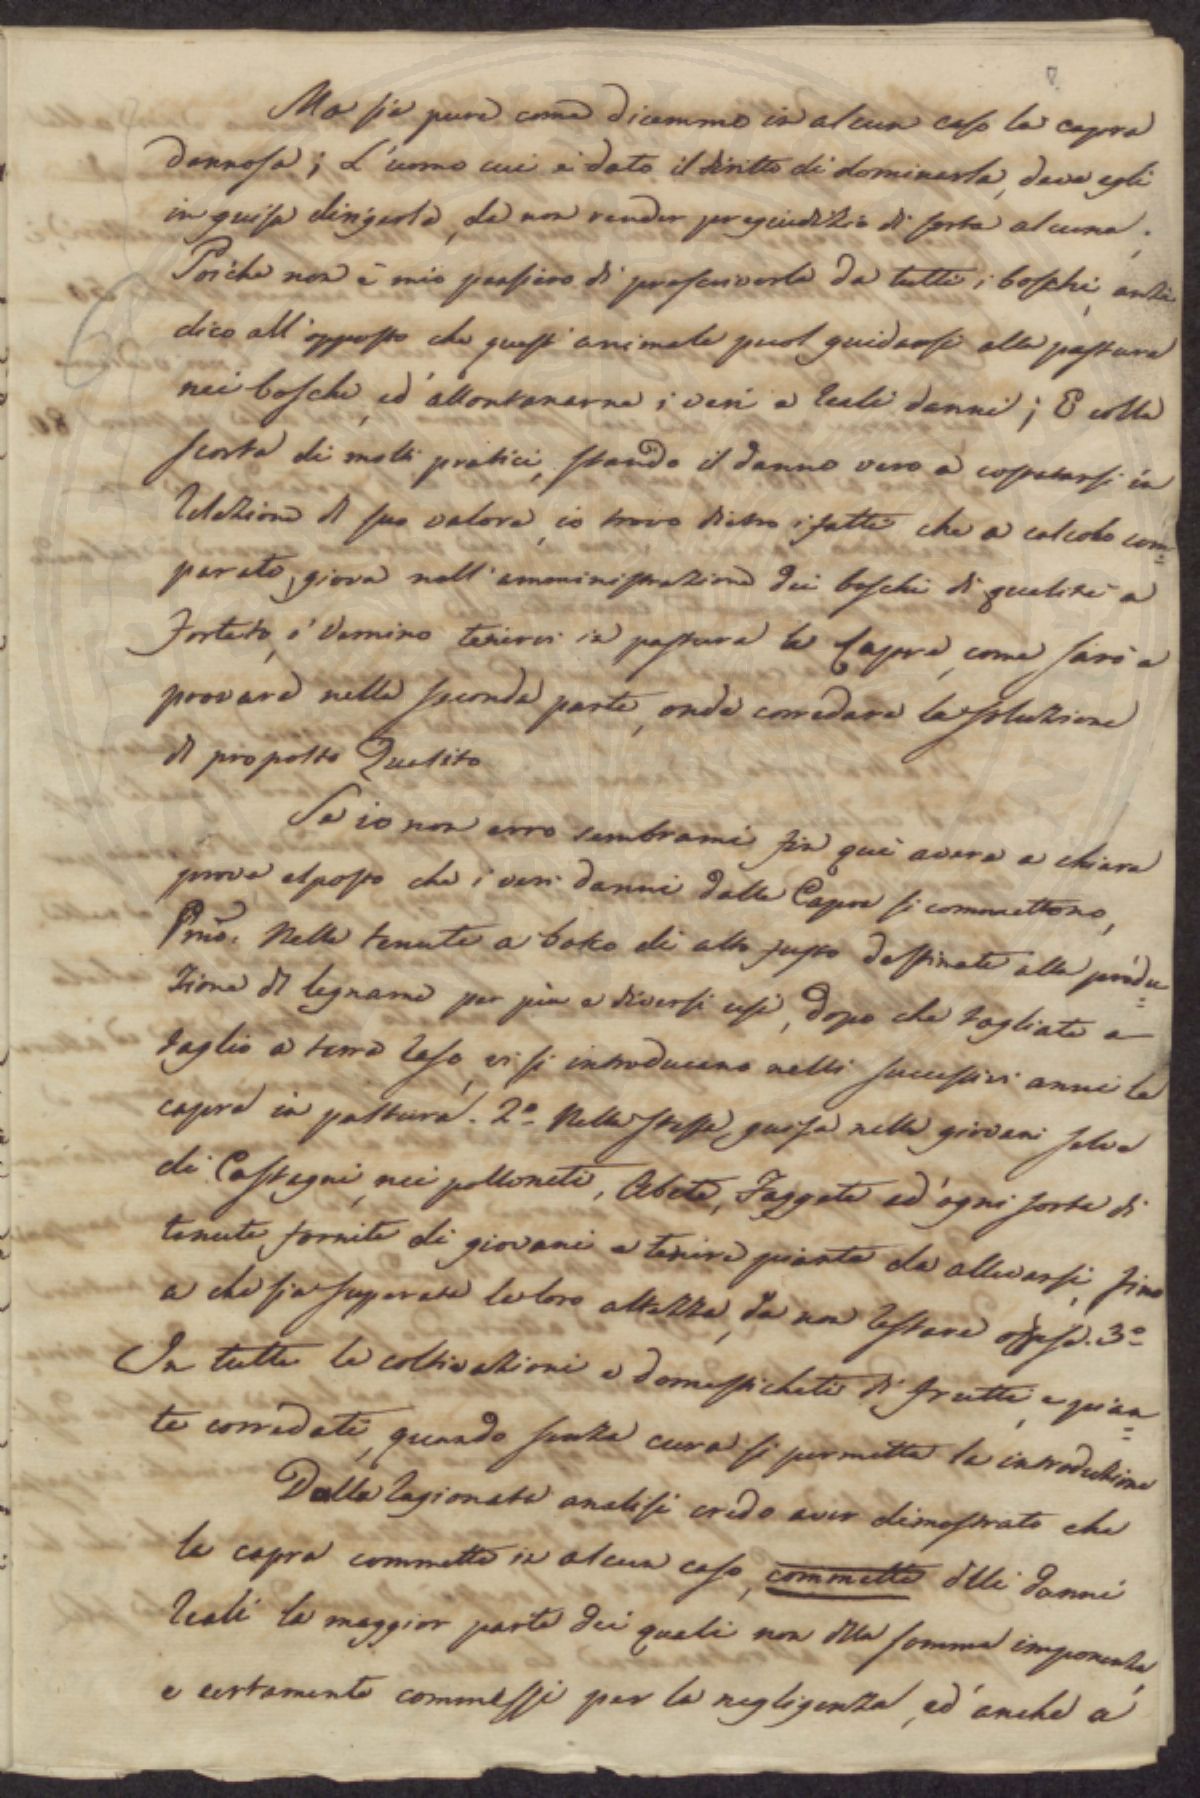 8.
Ma sia pure come dicemmo in alcun caso la capra
dannosa; L'uomo cui è dato il diritto di dominarla, deve egli
in guisa dirigerla, da non render pregiudizio di sorta alcuna.
Poichè non è mio pensiero di proscriverla da tutti i boschi, anzi
dico all'opposto che questi animale puol guidarsi alla pastura
nei boschi, ed'allontanarne i veri e reali danni; E colla
scorta di molti pratici, stando il danno vero a costatarsi in
relazione di suo valore, io trovo dietro i fatti che a calcolo com=
parato, giova nell'amministrazione dei boschi di qualità a
Forteto, o' Vernino tenervi in pastura la Capra, come sarò a
provare nella seconda parte, onde corredare la soluzione
di proposto Quesito
Se io non erro sembrami fin qui avere a chiara
prova esposto che i veri danni dalle Capre si commettono,
Prio. Nelle tenute a bosco di alto fusto destinate alla produ=
zione di legname per più e diversi usi, dopo che tagliate a
taglio a terra raso, vi si introducano nelli successivi anni le
capre in pastura. 2º Nella stessa guisa nelle giovani selve
di Castagni, nei polloneti, Abete, Faggete ed'ogni sorta di
tenute fornite di giovani e tenire piante da allevarsi, fino
a che sia superata la loro altezza, da non restare offese. 3º
In tutte le coltivazioni e domesticheti di frutti, e pian=
te corredati, quando senza cura si permetta la introduzione
Dalla ragionata analisi credo aver dimostrato che
la capra commette in alcun caso, commette delli danni
reali la maggior parte dei quali non della somma imponenza,
e certamente commessi per la negligenza, ed'anche a'